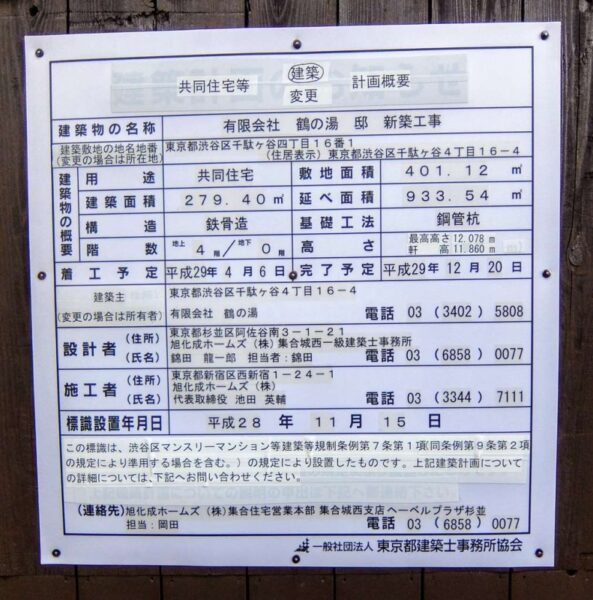 共同住宅等 建築 変更 計画概要
建築物の名称 有限会社 鶴の湯 邸 新築工事
建築敷地の地名地番 (変更の場合は所在地) 東京都渋谷区千駄ヶ谷四丁目16番1
(住居表示) 東京都渋谷区千駄ヶ谷4丁目16-4
建築物の概要
用途 共同住宅 敷地面積 401.12 ㎡
建築面積 279.40㎡ 延べ面積 933.54 ㎡
構造 鉄骨造 基礎工法 鋼管杭
階数 地上 4階/地下 0階 高さ 最高高さ 12.078 m
軒高 11.860 m
着工予定 平成29年 4月 6日 完了予定 平成29年 12月 20日
建築主 (変更の場合は所有者) 東京都渋谷区千駄ヶ谷4丁目16-4
有限会社 鶴の湯 電話 03 (3402) 5808
設計者 (住所) 東京都杉並区阿佐谷南3-1-21
旭化成ホームズ(株) 集合城西一級建築士事務所
(氏名) 錦田 龍一郎 担当者:錦田 電話 03 (6858) 0077
施工者 (住所) 東京都新宿区西新宿1-24-1
旭化成ホームズ (株)
(氏名) 代表取締役 池田 英輔 電話 03 (3344) 7111
標識設置年月日 平成28 年 11 月 15 日
この標識は、渋谷区マンスリーマンション等建築等規制条例第7条第1項(同条例第9条第2項
の規定により準用する場合を含む。)の規定により設置したものです。上記建築計画について
の詳細については、下記へお問い合わせください。
(連絡先) 旭化成ホームズ (株)集合住宅営業本部 集合城西支店 ヘーベルプラザ杉並
担当:岡田 電話 03 (6858) 0077
一般社団法人 東京都建築士事務所協会